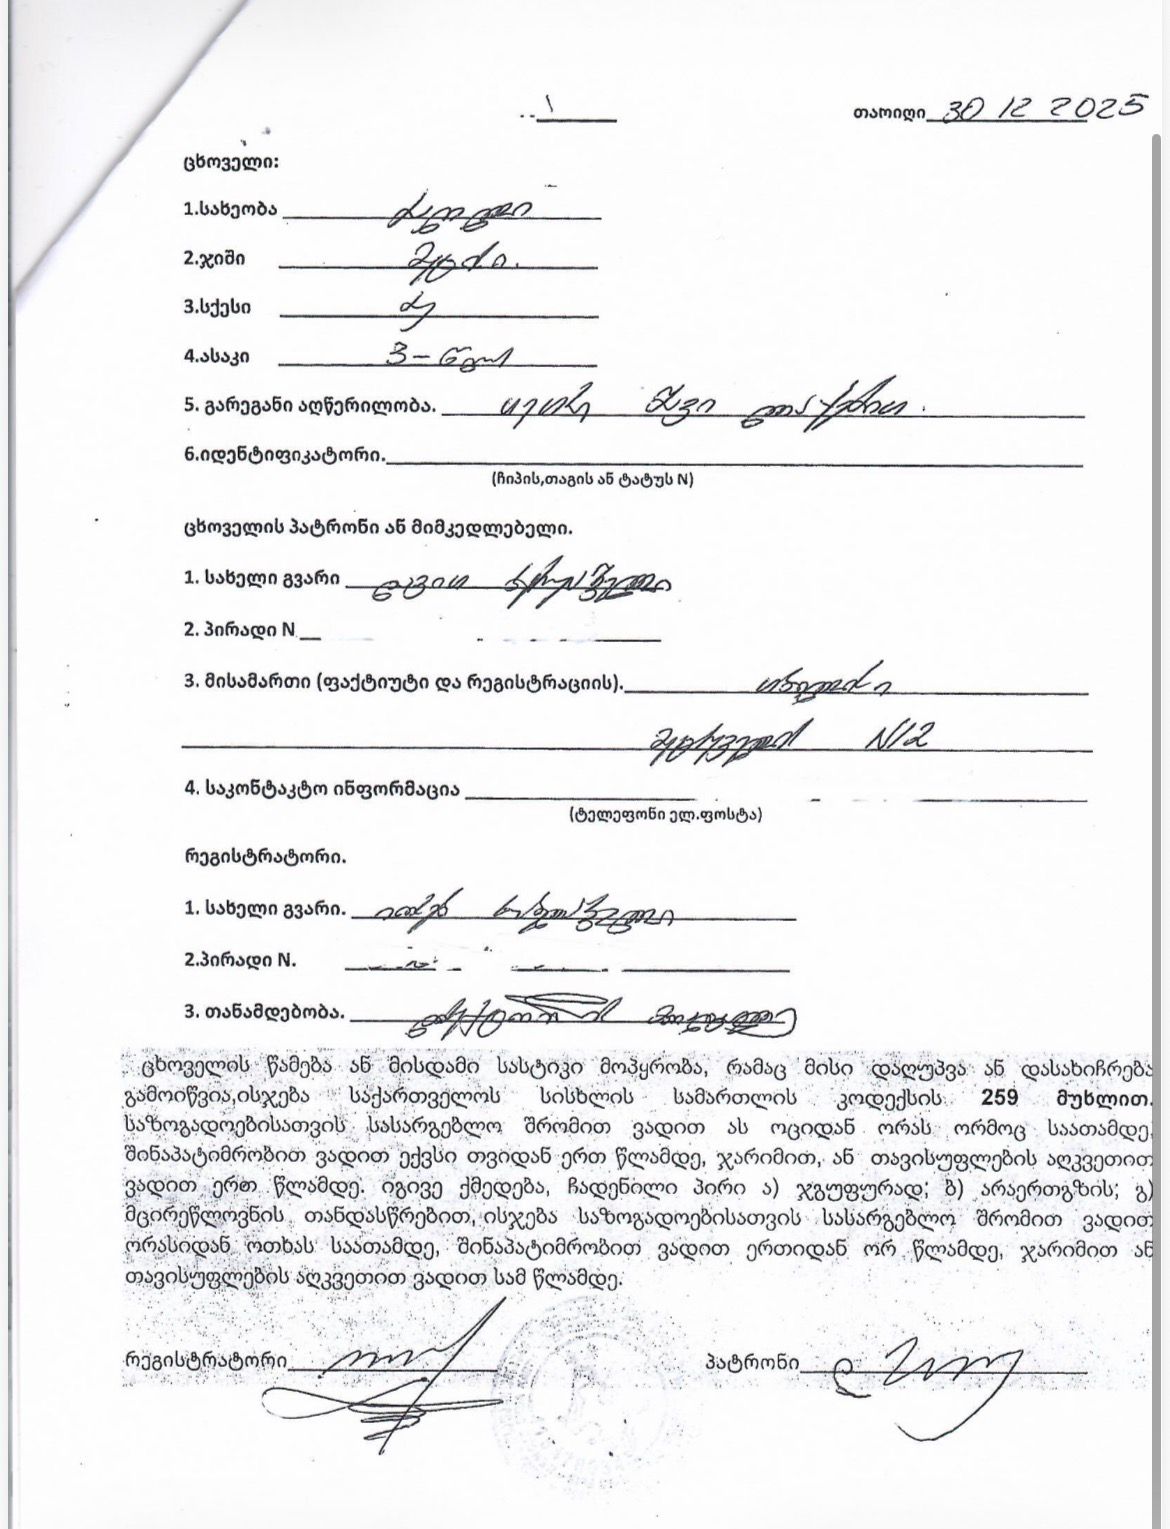 თარიღი 30 12 2025
ცხოველი:
1.სახეობა ძაღლი
2.ჯიში
3.სქესი
4.ასაკი 3-წლის
5. გარეგანი აღწერილობა. თეთრი შავი ლაქებით.
6.იდენტიფიკატორი.
(ჩიპის,თაგის ან ტატუს N)
ცხოველის პატრონი ან მიმკედლებელი.
1. სახელი გვარი დავით
2. პირადი N
3. მისამართი (ფაქტიუტი და რეგისტრაციის).
N12
4. საკონტაკტო ინფორმაცია
(ტელეფონი ელ.ფოსტა)
რეგისტრატორი.
1. სახელი გვარი.
2.პირადი N.
3. თანამდებობა.
ცხოველის წამება ან მისდამი სასტიკი მოპყრობა, რამაც მისი დაღუპვა ან დასახიჩრება
გამოიწვია,ისჯება საქართველოს სისხლის სამართლის კოდექსის 259 მუხლით.
საზოგადოებისათვის სასარგებლო შრომით ვადით ას ოციდან ორას ორმოც საათამდე,
შინაპატიმრობით ვადით ექვსი თვიდან ერთ წლამდე, ჯარიმით, ან თავისუფლების აღკვეთით
ვადით ერთ წლამდე. იგივე ქმედება, ჩადენილი პირი ა) ჯგუფურად; ბ) არაერთგზის; გ)
მცირეწლოვნის თანდასწრებით, ისჯება საზოგადოებისათვის სასარგებლო შრომით ვადით
ორასიდან ოთხას საათამდე, შინაპატიმრობით ვადით ერთიდან ორ წლამდე, ჯარიმით ან
თავისუფლების აღკვეთით ვადით სამ წლამდე.
რეგისტრატორი პატრონი